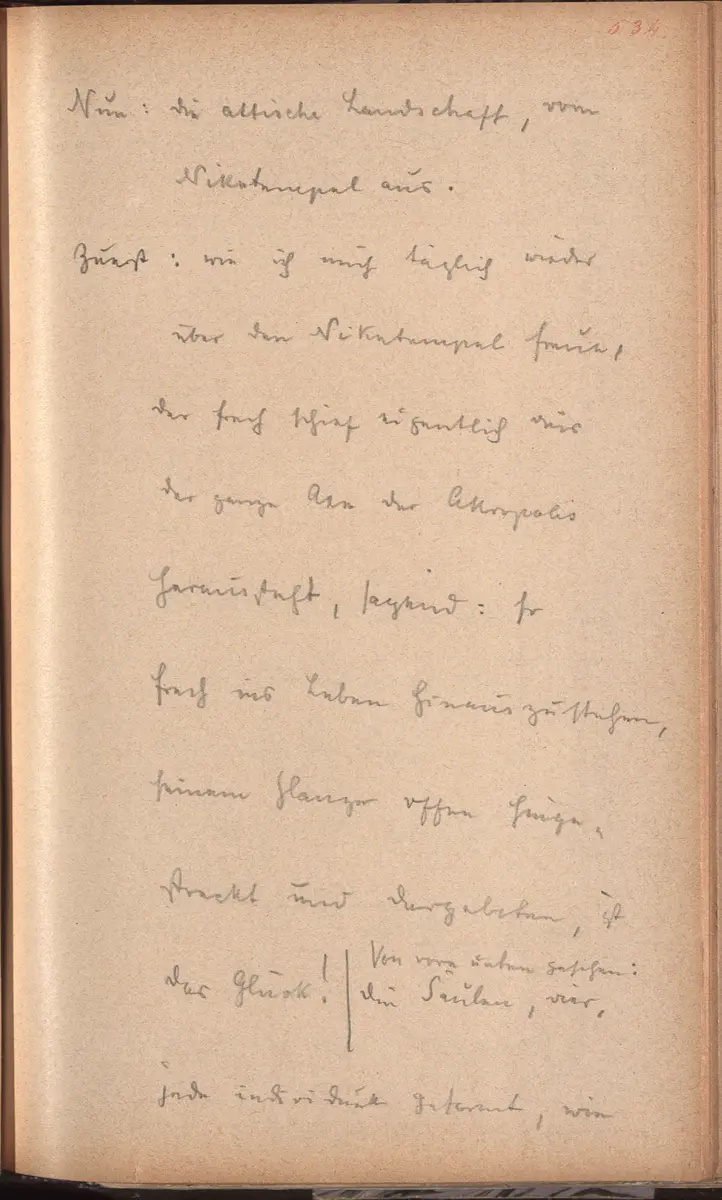 534.
Nun: die attische Landschaft, vom
Niketempel aus.
Zuerst: wie ich mich täglich wieder
über den Niketempel freue,
der frech schief eigentlich aus
der ganze Axe der Akropolis
heraussteht, sagend: so
frech ins Leben hinauszustehen,
seinem Glanze offen hinge-
streckt und dargeboten, ist
das Glück!
Von vorn unten gesehen:
die Säulen, vier,
jede individuell geformt, wie